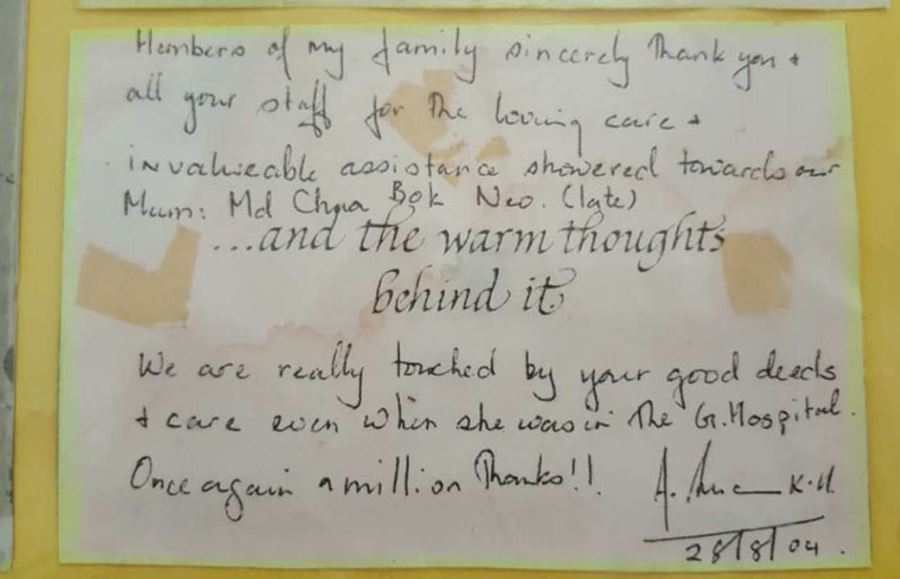 Members of my family sincerely Thank you +
all your staff for The loving care +
invalueable assistance showered towards our
Mum: Md Chua Bok Neo. (late)
...and the warm thoughts
behind it
We are really touched by your good deeds
+ care even when she was in The G. Hospital.
Once again a million Thanks!!
K.H.
28/8/04.